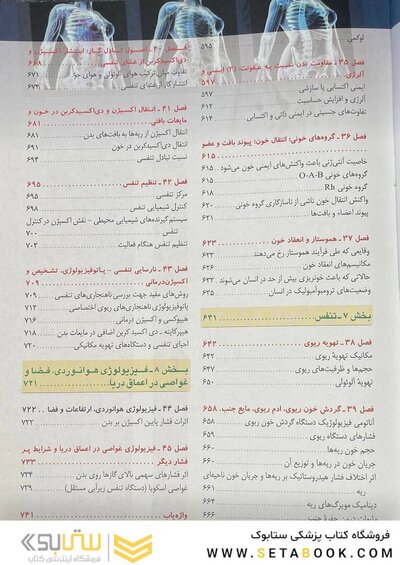 لوکمی ۵۹۵
فصل ۳۵ ـ مقاومت بدن نسبت به عفونت: (۲) ایمنی و
آلرژی ۵۹۷
ایمنی اکتسابی یا سازشی ۵۹۷
آلرژی و افزایش حساسیت ۶۱۲
تفاوت‌های جنسیتی در ایمنی ذاتی و اکتسابی ۶۱۴
فصل ۳۶ ـ گروه‌های خونی؛ انتقال خون؛ پیوند بافت و عضو
۶۱۵
خاصیت آنتی‌ژنی باعث واکنش‌های ایمنی خون می‌شود ۶۱۵
گروه‌های خونی O-A-B ۶۱۵
گروه خونی Rh ۶۱۸
واکنش انتقال خون ناشی از ناسازگاری گروه خونی ۶۲۰
پیوند اعضاء و بافت‌ها ۶۲۱
فصل ۳۷ ـ هموستاز و انعقاد خون ۶۲۳
وقایعی که طی فرآیند هموستاز رخ می‌دهند ۶۲۳
مکانیسم‌های انعقاد خون ۶۲۶
حالاتی که باعث خونریزی بیش از حد در انسان می‌شوند ۶۳۳
وضعیت‌های ترومبوآمبولیک در انسان ۶۳۵
بخش ۷ ـ تنفس ۶۴۱
فصل ۳۸ ـ تهویه ریوی ۶۴۲
مکانیک تهویهٔ ریوی ۶۴۲
حجم‌ها و ظرفیت‌های ریوی ۶۴۷
تهویهٔ آلوئولی ۶۵۰
فصل ۳۹ ـ گردش خون ریوی، ادم ریوی، مایع جنب. ۶۵۸
آناتومی فیزیولوژیک دستگاه گردش خون ریوی ۶۵۸
فشارهای دستگاه ریوی ۶۵۹
حجم خون ریه‌ها ۶۶۰
جریان خون در ریه‌ها و توزیع آن ۶۶۰
اثر اختلاف فشار هیدروستاتیک بر ریه‌ها و جریان خون ناحیه‌ای
ریه ۶۶۱
دینامیک مویرگ‌های ریه ۶۶۴
مایعات درون حفرهٔ جنب ۶۶۶
فصل ۴۰ ـ اصول تبادل گاز؛ انتشار اکسیژن و
دی‌اکسیدکربن از غشای تنفسی ۶۶۸
تفاوت میان ترکیب هوای آلوئولی و هوای جو ۶۷۱
انتشار گازها از غشای تنفسی ۶۷۴
فصل ۴۱ ـ انتقال اکسیژن و دی‌اکسیدکربن در خون و
مایعات بافتی ۶۸۱
انتقال اکسیژن از ریه‌ها به بافت‌های بدن ۶۸۱
انتقال دی‌اکسیدکربن در خون ۶۹۱
نسبت تبادل تنفسی ۶۹۴
فصل ۴۲ ـ تنظیم تنفس ۶۹۵
مرکز تنفس ۶۹۵
کنترل شیمیایی تنفس ۶۹۸
سیستم گیرنده‌های شیمیایی محیطی ـ نقش اکسیژن در کنترل
تنفس ۷۰۰
تنظیم تنفس هنگام فعالیت ۷۰۳
فصل ۴۳ ـ نارسایی تنفسی ـ پاتوفیزیولوژی، تشخیص و
اکسیژن‌درمانی ۷۰۹
روش‌های مفید جهت بررسی ناهنجاری‌های تنفسی ۷۰۹
پاتوفیزیولوژی ناهنجاری‌های ریوی اختصاصی ۷۱۲
هیپوکسی و اکسیژن درمانی ۷۱۶
هیپرکاپنه ـ دی اکسید کربن اضافی در مایعات بدن ۷۱۸
احیای تنفسی و دستگاه‌های تهویه مکانیکی ۷۲۰
بخش ۸ ـ فیزیولوژی هوانوردی، فضا و
غواصی در اعماق دریا ۷۲۱
فصل ۴۴ ـ فیزیولوژی هوانوردی، ارتفاعات و فضا ۷۲۲
اثرات فشار پایین اکسیژن بر بدن ۷۲۲
فصل ۴۵ ـ فیزیولوژی غواصی در اعماق دریا و شرایط پر
فشار دیگر ۷۳۳
اثر فشارهای سهمی بالای گازها روی بدن ۷۳۴
غواصی اسکوبا (دستگاه تنفس زیرآبی مستقل) ۷۳۹
واژه‌یاب ۷۴۱
ستابوک
فروشگاه اینترنتی کتاب
فروشگاه کتاب پزشکی ستابوک
WWW.SETABOOK.COM